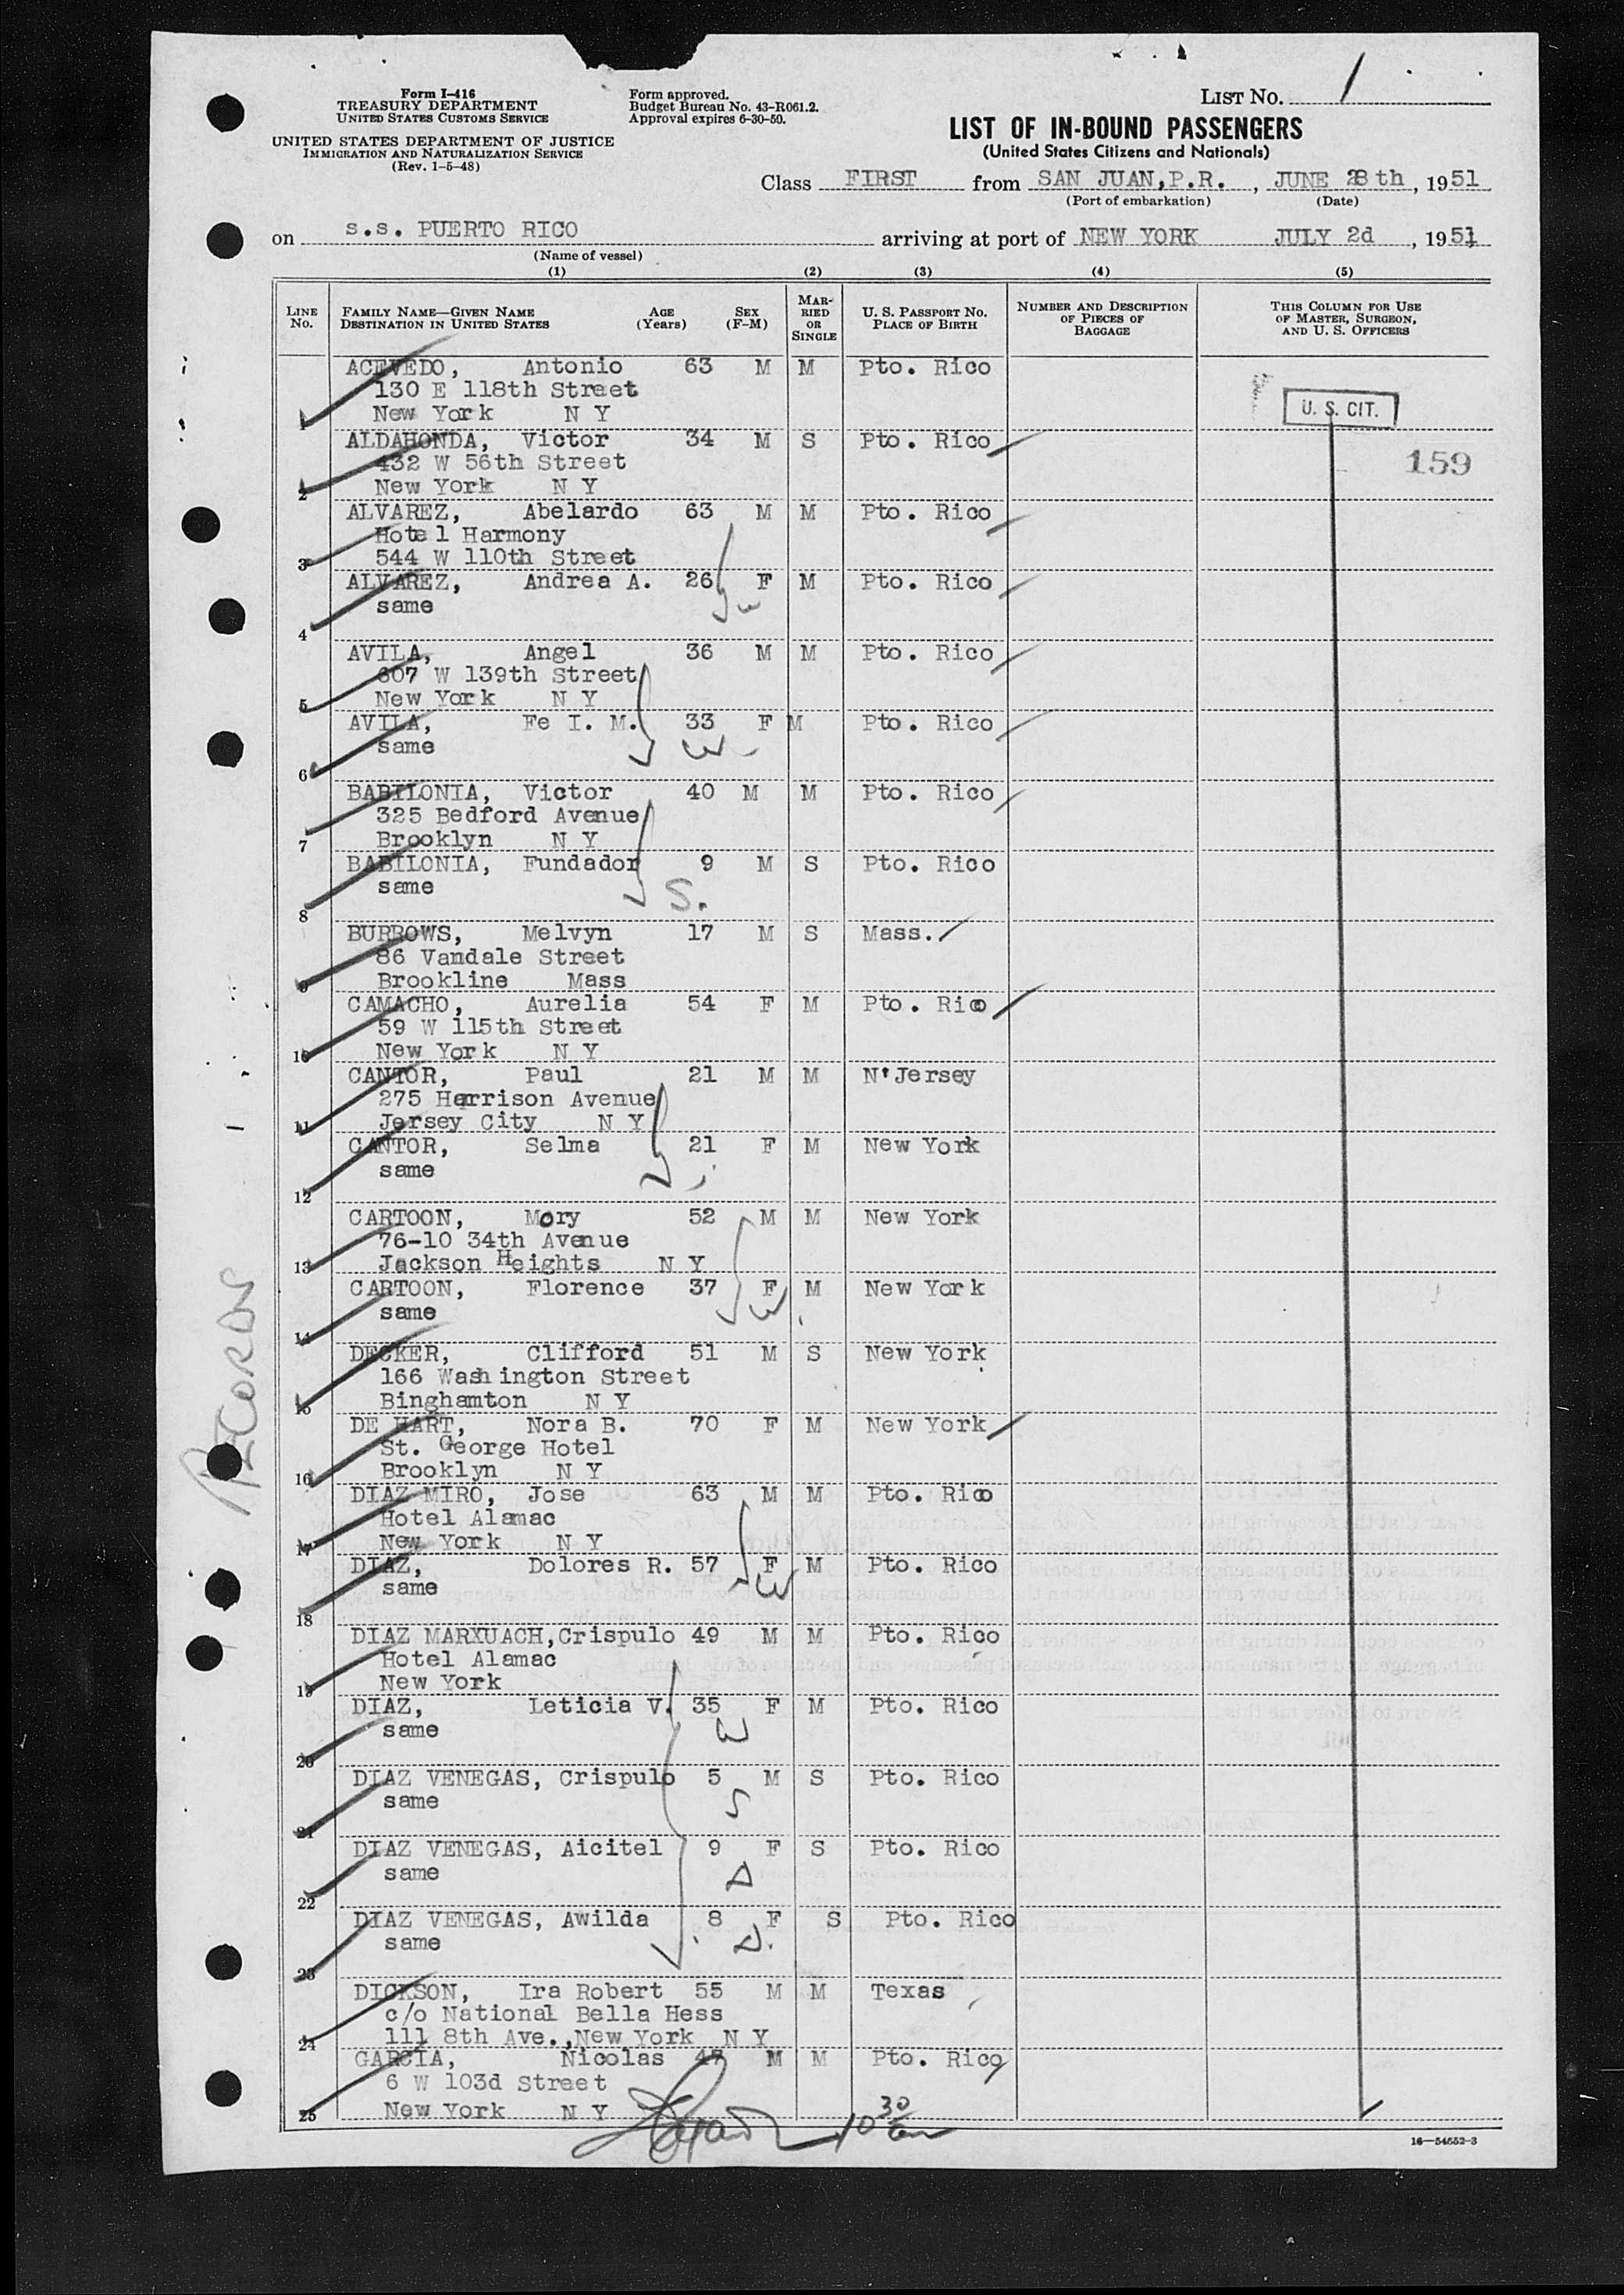 Form I-416
TREASURY DEPARTMENT
UNITED STATES CUSTOMS SERVICE
UNITED STATES DEPARTMENT OF JUSTICE
IMMIGRATION AND NATURALIZATION SERVICE
(Rev. 1-5-48)
Form approved.
Budget Bureau No. 43-R061.2.
Approval expires 6-30-50.
LIST NO. 1
LIST OF IN-BOUND PASSENGERS
(United States Citizens and Nationals)
Class FIRST from SAN JUAN, P.R., JUNE 28th, 1951
(Port of embarkation) (Date)
on s.s. PUERTO RICO arriving at port of NEW YORK JULY 2d, 1951
(Name of vessel)
(1) (2) (3) (4) (5)
LINE NO. FAMILY NAME—GIVEN NAME DESTINATION IN UNITED STATES AGE (Years) SEX (F-M) MARRIED OR SINGLE U. S. PASSPORT NO. PLACE OF BIRTH NUMBER AND DESCRIPTION OF PIECES OF BAGGAGE THIS COLUMN FOR USE OF MASTER, SURGEON, AND U. S. OFFICERS
ACEVEDO, Antonio 63 M M Pto. Rico
130 E 118th Street
1 New York N Y U. S. CIT.
ALDAHONDA, Victor 34 M S Pto. Rico
432 W 56th Street 159
2 New York N Y
ALVAREZ, Abelardo 63 M M Pto. Rico
Hotel Harmony
3 544 W 110th Street
ALVAREZ, Andrea A. 26 F M Pto. Rico
same W
4
AVILA, Angel 36 M M Pto. Rico
607 W 139th Street
5 New York N Y
AVILA, Fe I. M. 33 F M Pto. Rico
same W
6
BABILONIA, Victor 40 M M Pto. Rico
325 Bedford Avenue
7 Brooklyn N Y
BABILONIA, Fundador 9 M S Pto. Rico
same S.
8
BURROWS, Melvyn 17 M S Mass.
86 Vandale Street
9 Brookline Mass
CAMACHO, Aurelia 54 F M Pto. Rico
59 W 115th Street
10 New York N Y
CANTOR, Paul 21 M M N'Jersey
275 Harrison Avenue
11 Jersey City N Y
CANTOR, Selma 21 F M New York
same
12
CARTOON, Mory 52 M M New York
76-10 34th Avenue
13 Jackson Heights N Y
CARTOON, Florence 37 F M New York
same W.
14
DECKER, Clifford 51 M S New York
166 Washington Street
15 Binghamton N Y
DE HART, Nora B. 70 F M New York
St. George Hotel
16 Brooklyn N Y
DIAZ MIRO, Jose 63 M M Pto. Rico
Hotel Alamac
17 New York N Y
DIAZ, Dolores R. 57 F M Pto. Rico
same W
18
DIAZ MARXUACH, Crispulo 49 M M Pto. Rico
Hotel Alamac
19 New York
DIAZ, Leticia V. 35 F M Pto. Rico
same W
20
DIAZ VENEGAS, Crispulo 5 M S Pto. Rico
same S
21
DIAZ VENEGAS, Aicitel 9 F S Pto. Rico
same D
22
DIAZ VENEGAS, Awilda 8 F S Pto. Rico
same D.
23
DICKSON, Ira Robert 55 M M Texas
c/o National Bella Hess
24 111 8th Ave., New York N Y
GARCIA, Nicolas 47 M M Pto. Rico
6 W 103d Street
25 New York N Y
10 30 am
16—54652-3
RECORDS